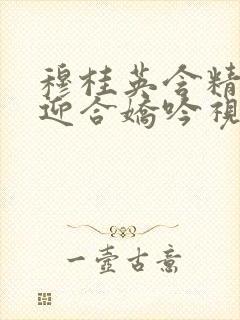 穆桂英含精
迎合娇吟视
一壶古意